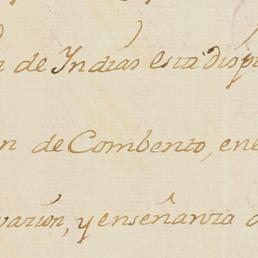 de Indias esta disp
n de Combento, en e
vazion, y enseñanza d